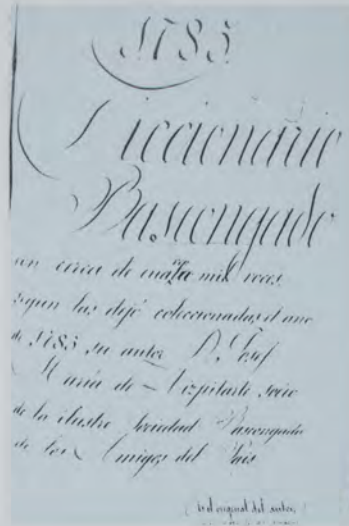 1785
Diccionario
Bascongado
con cerca de mil voces
segun las dejó coleccionadas el ano
de 1785 su autor D. Josef
Maria de Aizpitarte socio
de la ilustre Sociedad Bascongada
de los Amigos del Pais
es el original del autor